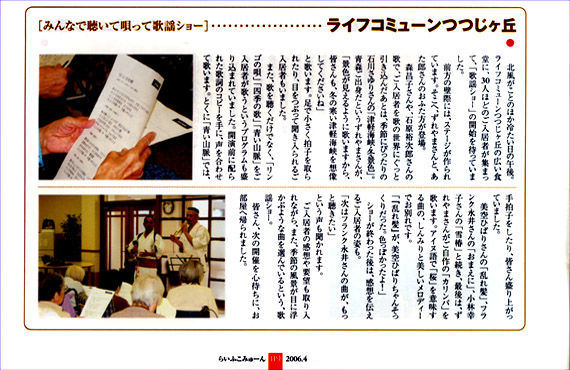 [みんなで聴いて唄って歌謡ショー]
ライフコミューンつつじヶ丘
北風がことのほか冷たい日の午後。
ライフコミューンつつじヶ丘の広い食
堂に、30人ほどのご入居者が集まっ
て、「歌謡ショー」の開始を待っていま
した。
前方の壁際には、ステージが作られ
ています。そこへずれやまさんと、あ
た郎さんのおふた方が登場。
森昌子さんや、石原裕次郎さんの
歌で、ご入居者を歌の世界にぐっと
引き込んだあとは、季節にぴったりの
石川さゆりさんの「津軽海峡・冬景色」。
青森ご出身だというずれやまさんが、
「景色が見えるように歌いますから、
皆さんも、冬の寒い津軽海峡を想像
してくださいね」
と歌います。足で小さく拍子を取ら
れたり、目をつぶって聞き入られるご
入居者もいました。
また、歌を聴くだけでなく、「リン
ゴの唄」「四季の歌」「青い山脈」をご
入居者が歌うというプログラムも盛
り込まれていました。開演前に配ら
れた歌詞のコピーを手に、声を合わせ
て歌います。とくに「青い山脈」では、
手拍子をしたり、皆さん盛り上がっ
ていました。
美空ひばりさんの「乱れ髪」、フラ
ンク永井さんの「おまえに」、小林幸
子さんの「雪椿」と続き、最後は、ず
れやまさんがご自作の「カリンパ」を
歌います。アイヌ語で、「桜」を意味す
る曲の、しんみりと美しいメロディー
でお別れです。
「『乱れ髪』が、美空ひばりちゃんそっ
くりだった。色っぽかったよ!」
ショーが終わった後は、感想を伝え
るご入居者の姿も。
「次はフランク永井さんの曲が、もっ
と聴きたい」
という声も聞かれます。
ご入居者の感想や要望も取り入
れながら、また、季節の風景が目に浮
かぶような曲を選んでいるという、歌
謡ショー。
皆さん、次の開催を心待ちに、お
部屋へ帰られました。
らいふこみゅーん
2006.4